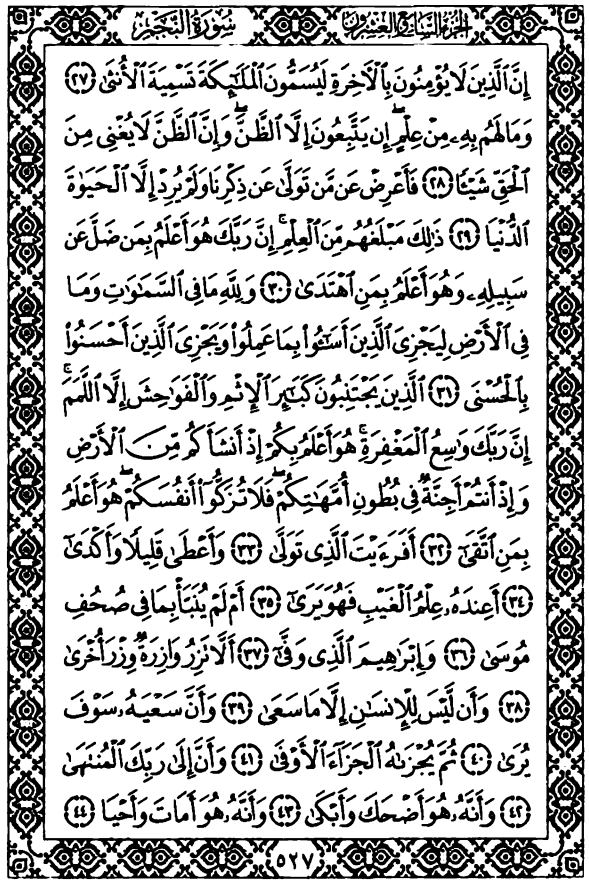 الجزء السابع والعشرون سورة النجم
إِنَّ ٱلَّذِينَ لَا يُؤْمِنُونَ بِٱلْءَاخِرَةِ لَيُسَمُّونَ ٱلْمَلَٰٓئِكَةَ تَسْمِيَةَ ٱلْأُنثَىٰ ٢٧
وَمَا لَهُم بِهِۦ مِنْ عِلْمٍ ۖ إِن يَتَّبِعُونَ إِلَّا ٱلظَّنَّ ۖ وَإِنَّ ٱلظَّنَّ لَا يُغْنِى مِنَ
ٱلْحَقِّ شَيْـًٔا ٢٨ فَأَعْرِضْ عَن مَّن تَوَلَّىٰ عَن ذِكْرِنَا وَلَمْ يُرِدْ إِلَّا ٱلْحَيَوٰةَ
ٱلدُّنْيَا ٢٩ ذَٰلِكَ مَبْلَغُهُم مِّنَ ٱلْعِلْمِ ۚ إِنَّ رَبَّكَ هُوَ أَعْلَمُ بِمَن ضَلَّ عَن
سَبِيلِهِۦ وَهُوَ أَعْلَمُ بِمَنِ ٱهْتَدَىٰ ٣٠ وَلِلَّهِ مَا فِى ٱلسَّمَٰوَٰتِ وَمَا
فِى ٱلْأَرْضِ لِيَجْزِىَ ٱلَّذِينَ أَسَٰٓـُٔوا۟ بِمَا عَمِلُوا۟ وَيَجْزِىَ ٱلَّذِينَ أَحْسَنُوا۟
بِٱلْحُسْنَى ٣١ ٱلَّذِينَ يَجْتَنِبُونَ كَبَٰٓئِرَ ٱلْإِثْمِ وَٱلْفَوَٰحِشَ إِلَّا ٱللَّمَمَ ۚ
إِنَّ رَبَّكَ وَٰسِعُ ٱلْمَغْفِرَةِ ۚ هُوَ أَعْلَمُ بِكُمْ إِذْ أَنشَأَكُم مِّنَ ٱلْأَرْضِ
وَإِذْ أَنتُمْ أَجِنَّةٌ فِى بُطُونِ أُمَّهَٰتِكُمْ ۖ فَلَا تُزَكُّوٓا۟ أَنفُسَكُمْ ۖ هُوَ أَعْلَمُ
بِمَنِ ٱتَّقَىٰٓ ٣٢ أَفَرَءَيْتَ ٱلَّذِى تَوَلَّىٰ ٣٣ وَأَعْطَىٰ قَلِيلًا وَأَكْدَىٰٓ
٣٤ أَعِندَهُۥ عِلْمُ ٱلْغَيْبِ فَهُوَ يَرَىٰٓ ٣٥ أَمْ لَمْ يُنَبَّأْ بِمَا فِى صُحُفِ
مُوسَىٰ ٣٦ وَإِبْرَٰهِيمَ ٱلَّذِى وَفَّىٰٓ ٣٧ أَلَّا تَزِرُ وَازِرَةٌ وِزْرَ أُخْرَىٰ
٣٨ وَأَن لَّيْسَ لِلْإِنسَٰنِ إِلَّا مَا سَعَىٰ ٣٩ وَأَنَّ سَعْيَهُۥ سَوْفَ
يُرَىٰ ٤٠ ثُمَّ يُجْزَىٰهُ ٱلْجَزَآءَ ٱلْأَوْفَىٰ ٤١ وَأَنَّ إِلَىٰ رَبِّكَ ٱلْمُنتَهَىٰ
٤٢ وَأَنَّهُۥ هُوَ أَضْحَكَ وَأَبْكَىٰ ٤٣ وَأَنَّهُۥ هُوَ أَمَاتَ وَأَحْيَا ٤٤
٥٢٧